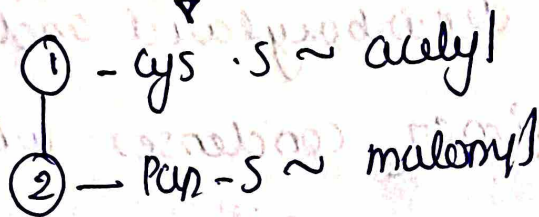 ① - cys . S ~ acetyl
② - Pan - S ~ malonyl